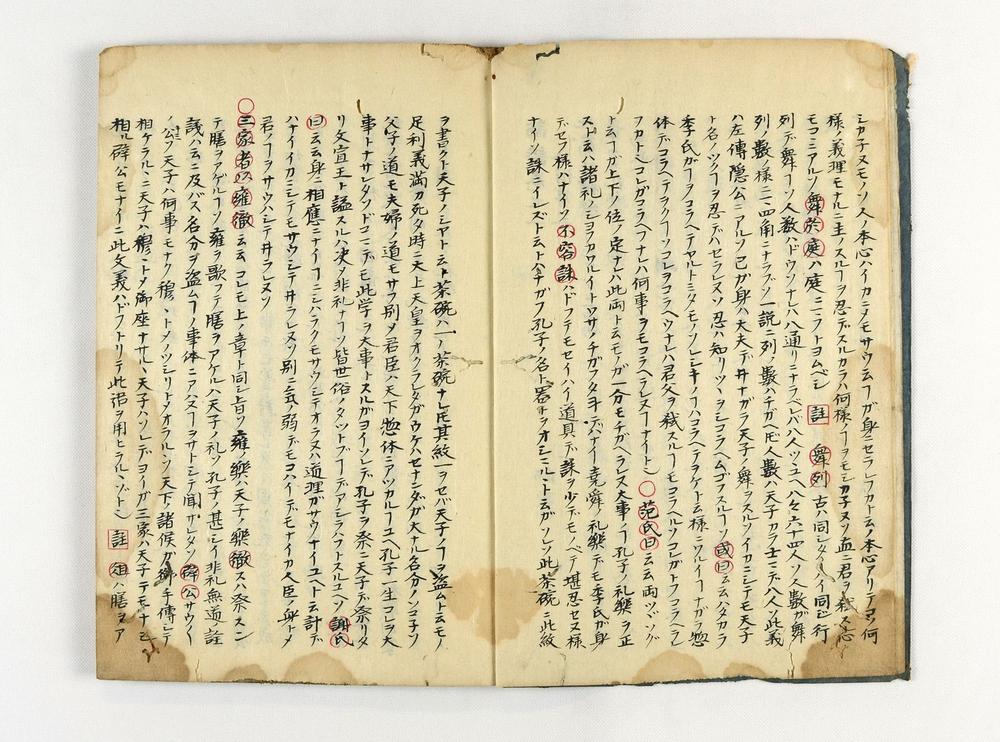 シカ子ヌモノソ人ノ本心ハイカニメモサウ云フガ身ニセラレフカト云ノ本心アリテコソ何
様ノ義理モナルニ主ノスルヲ忍デスルカラハ何様ノフヲモシカ子ヌソ血ニ君ヲ弑スル心
モコニアルソ 舞於庭ハ庭ニニフトヨムベシ 註 舞列古ハ同シタノイ同ビ行
列デ舞フソ人数ハドウソナレハ八通リニナラベレバ八人ツユヘ八々六十四人ソ人数ガ舞
列ノ数ノ様ニ四角ニナラブソ一説ニ列ノ数ハチガヘ𪜈人数ハ天子カラ士ニデ八人ソ此義
ハ左傳隠公ニアルソ己ガ身ハ大夫デ井ナガラ天子ノ舞ヲスルソイカニシテモ天子
ト名ノツクフヲ忍デハセラレヌソ忍ハ知リツヽヲシコラヘムゴフスルフソ 或曰云云カタカラ
李氏ガフヲコラヘテヤルトミタモノソ
体デコラヘテヲクフソコレヲコラヘウナレハ君父ヲ弑スルフモコラヘルソコレガトフコラヘラレ
フカトヽコレガコラヘフナレハ何事ヲモコラヘラレヌフナイトヽ ○范氏曰云云両ツヾソグ
ト云フガ上下ノ位ノ定ナレハ此両ト云モノガ一分モチガヘラレヌ大事ノフ孔子ノ礼楽ヲ正
ストハ諸礼ノシヨワカワルイトワサノチガフタヨデナイ堯舜ノ礼樂デモ李氏ガ身
デセフ様ハナイソ 不容誅ハドフテモセイハイ道具デ誅ヲ少デモノベテ堪忍セヌ様
ナイソ誅ニイレズト云トハチガフ孔子ノ名ト器ヲヲオシニルヽト云ガソレソ此茶碗ニ此紋
ヲ書クト天子ノシヤト云茶碗ハ一ノ茶碗ナレ𪜈其紋一ヲセバ天子ノフヲ盗ムト云モノ
足利義満カ死タ時ニ太上天皇ヲオクラレタガウケハセナンダガ大ナル名分ノソコ子ソ
父子ノ道モ夫婦ノ道モサフ別メ君臣ハ天下ノ惣体ニヲツカルフユヘ孔子一生コレヲ大
事トナサレタソドコニデモ此学ヲ大事トスルガヨイソレデ孔子ヲ祭ニ天子デ祭リタ
リ文宣王ト諡スルハ决メ非礼ナフソ皆世俗ノタツトブフデアシラハフトスルユヘソ 謝氏
曰云云身ニ相應ニナイフニシハラクモサウシテオラヌハ道理ガサウナイユヘト云計デ
ハナイイカニシテモサウシテ井ラレヌソ別ニ氣ノ弱デモコハイデモナイカ人臣ノ身トメ
君ノフヲサウハシテ井ラレヌソ
○三家者以雍徹云云コレモ上ノ章ト同シ旨ソ雍ノ樂ハ天子ノ樂徹スハ祭スン
テ膳ヲアゲルフソ雍ヲ歌フテ膳ヲアゲルハ天子ノ礼ソ孔子ノ甚シイ非礼無道ノ詮
議ハ云ニ及バズ名分ヲ盗ムフノ事体ニアハヌフヲサトシテ聞ナサレタソ 辟公サウノー
ノ公ソ天子ハ何事モナク穆ヽトメソツシリトメオラルヽソ天下ノ諸侯ガ御手傳シテ
相ケラルヽニ天子ハ穆ヽトメ御座ナサルヽ天子ハソレデヨイガ三家ハ天子テモナシ
相ル辟公モナイニ此文義ハドフトリテ此詩ヲ用ヒラルヽゾトヽ 註 俎ハ膳ヲア